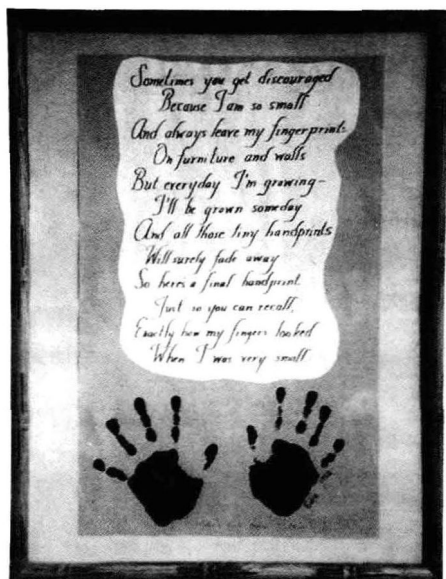 Sometimes you get discouraged
Because I am so small
And always leave my fingerprints
On furniture and walls
But everyday I'm growing-
I'll be grown someday
And all those tiny handprints
Will surely fade away
So here's a final handprint
Just so you can recall,
Exactly how my fingers looked
When I was very small